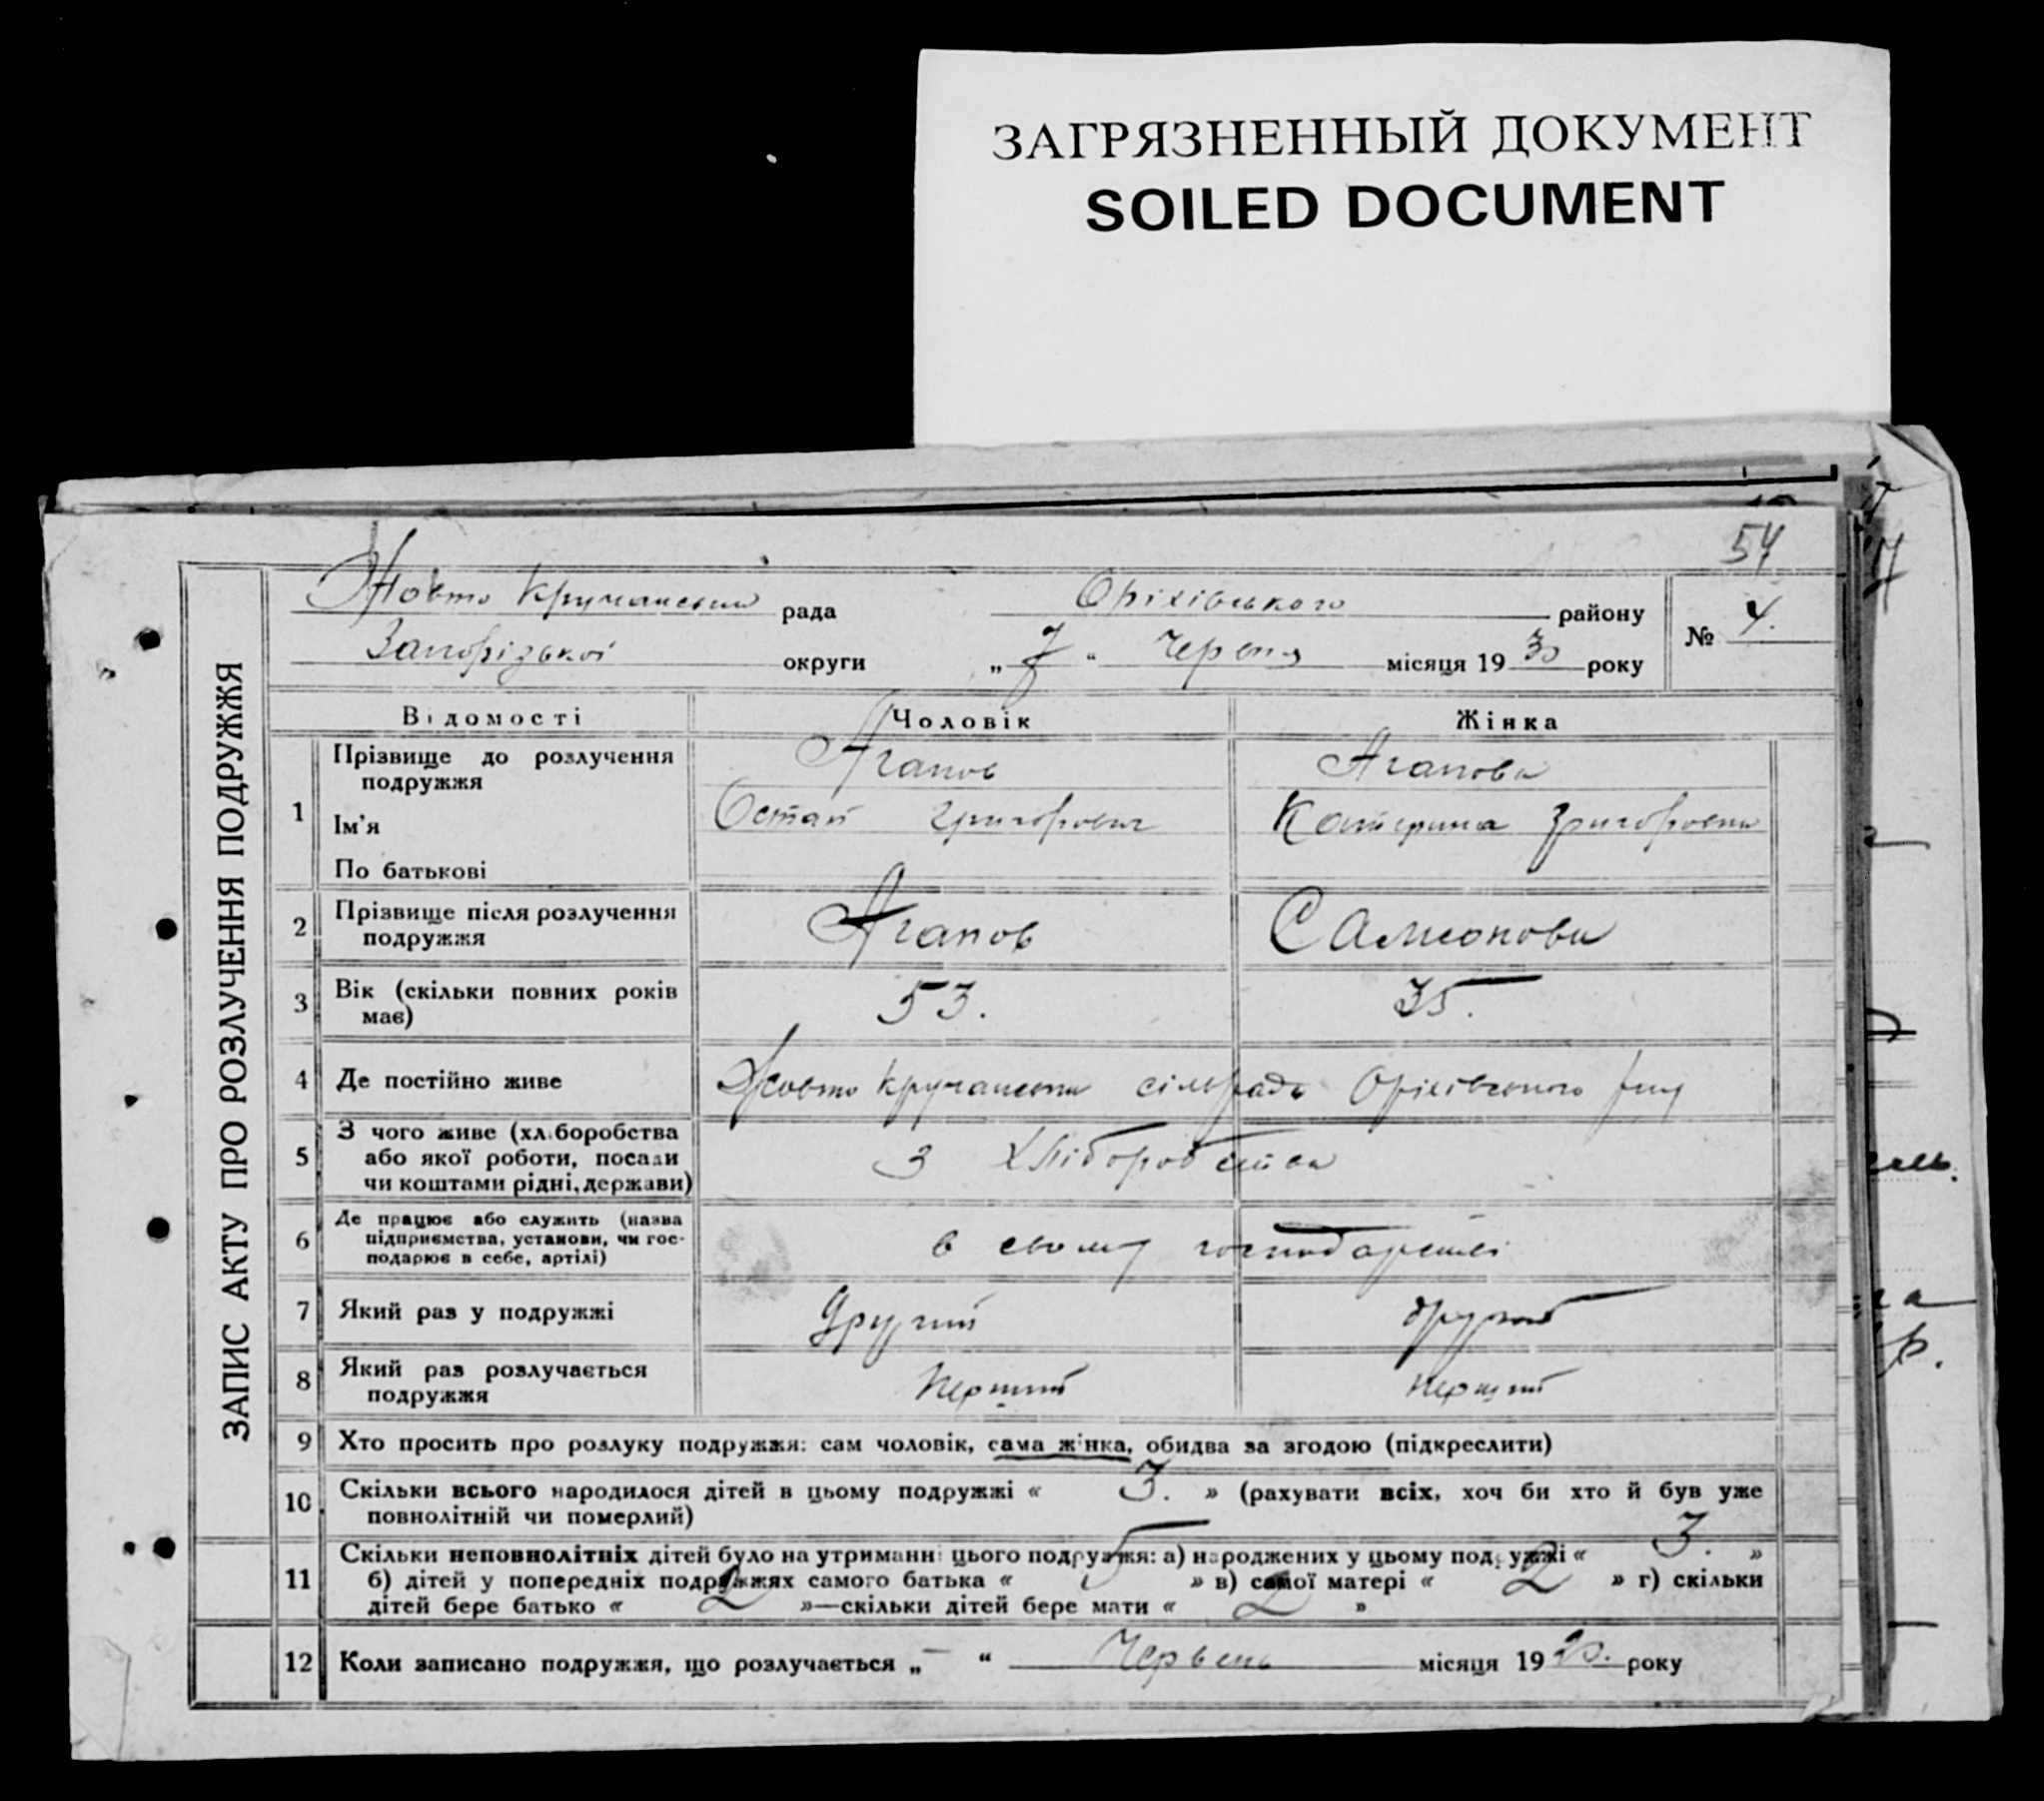 ЗАГРЯЗНЕННЫЙ ДОКУМЕНТ
SOILED DOCUMENT
54
ЗАПИС АКТУ ПРО РОЗЛУЧЕННЯ ПОДРУЖЖЯ
Жовто Кручанська рада Оріхівського району
№ 4.
Запорізької округи „7“ Червня місяця 1930 року
Відомості Чоловік Жінка
1 Прізвище до розлучення подружжя Агапов Агапова
Ім'я Остап Григорович Катерина Григоровна
По батькові
2 Прізвище після розлучення подружжя Агапов Самсонова
3 Вік (скільки повних років має) 53. 35.
4 Де постійно живе Жовто Кручанська сільрада Оріхівського р-ну
5 З чого живе (хліборобства або якої роботи, посади чи коштами рідні, держави) З хліборобства
6 Де працює або служить (назва підприємства, установи, чи господарює в себе, артілі) в свому господарстві
7 Який раз у подружжі Другий другий
8 Який раз розлучається подружжя Перший перший
9 Хто просить про розлуку подружжя: сам чоловік, сама жінка, обидва за згодою (підкреслити)
10 Скільки всього народилося дітей в цьому подружжі « 3. » (рахувати всіх, хоч би хто й був уже
повнолітній чи померлий)
11 Скільки неповнолітніх дітей було на утриманні цього подружжя: а) народжених у цьому подружжі « 3. »
б) дітей у попередніх подружжях самого батька « 5 » в) самої матері « 2 » г) скільки
дітей бере батько « 2 »—скільки дітей бере мати « 2 »
12 Коли записано подружжя, що розлучається „—“ Червень місяця 1920. року